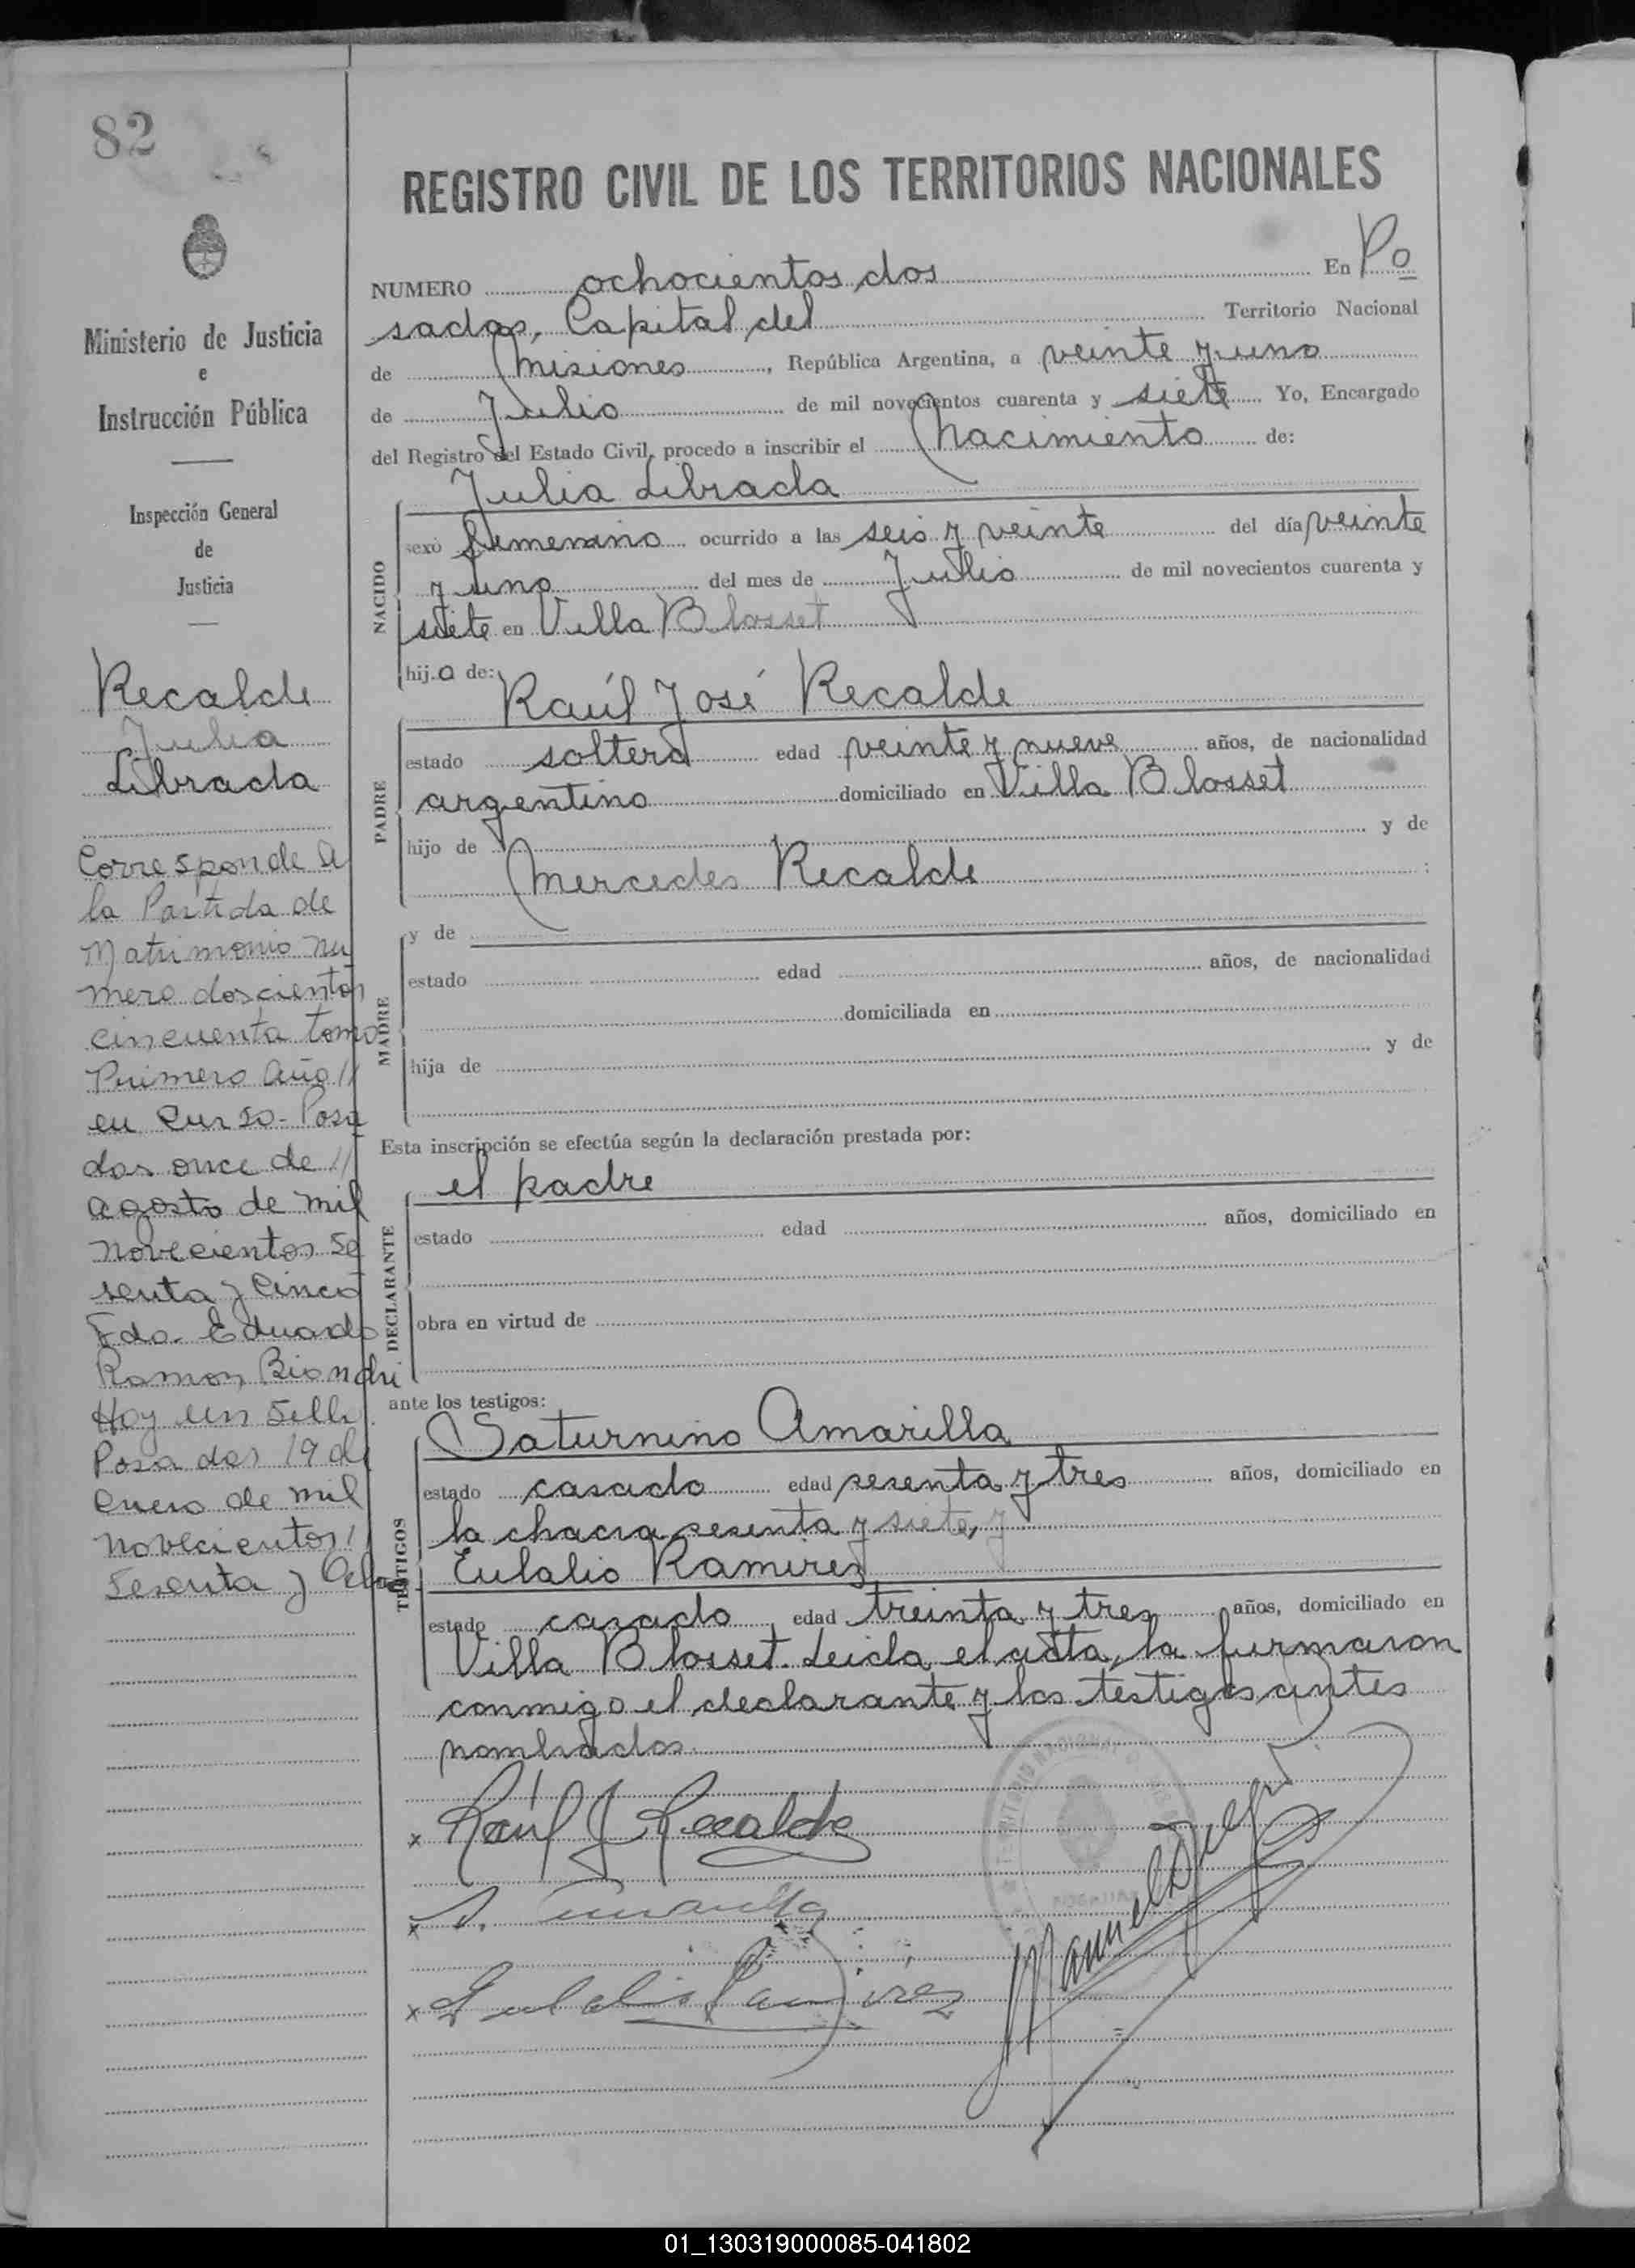 82
Ministerio de Justicia
e
Instrucción Pública
Inspección General
de
Justicia
Recalde
Julia
Librada
Corresponde a
la Partida de
Matrimonio nu
mero doscientos
cincuenta tomo
Primero Año //
en Curso - Posa
das once de //
agosto de mil
novecientos se
senta y cinco
Fdo. Eduardo
Ramon Biondri
Hoy un Sello
Posadas 19 de
enero de mil
novecientos /
sesenta y
REGISTRO CIVIL DE LOS TERRITORIOS NACIONALES
NUMERO ochocientos dos En Po
sadas, Capital del Territorio Nacional
de Misiones, República Argentina, a veinte y uno
de Julio de mil novecientos cuarenta y siete Yo, Encargado
del Registro del Estado Civil, procedo a inscribir el Nacimiento de:
NACIDO
Julia Librada
sexo femenino ocurrido a las seis y veinte del día veinte
y uno del mes de Julio de mil novecientos cuarenta y
siete en Villa Blosset
hija de:
PADRE
Raúl José Recalde
estado soltero edad veinte y nueve años, de nacionalidad
argentino domiciliado en Villa Blosset
hijo de y de
Mercedes Recalde :
MADRE
y de
estado edad años, de nacionalidad
domiciliada en
hija de y de
Esta inscripción se efectúa según la declaración prestada por:
DECLARANTE
el padre
estado edad años, domiciliado en
obra en virtud de
ante los testigos:
TESTIGOS
Saturnino Amarilla
estado casado edad sesenta y tres años, domiciliado en
la chacra sesenta y siete, y
Eulalio Ramirez
estado casado edad treinta y tres años, domiciliado en
Villa Blosset. Leida el acta, la firmaron
conmigo el declarante y los testigos antes
nombrados.
x Raúl J Recalde
x S. Amarilla
x Eulalio Ramirez
Manuel
POSADAS
01_130319000085-041802